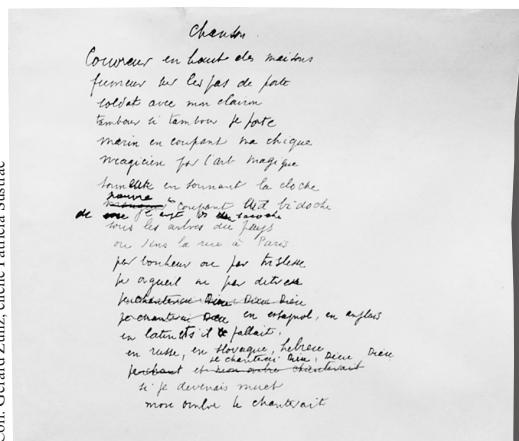 Chanson
Couvreur en haut des maisons
fumeur sur les pas de porte
soldat avec mon clairon
tambour si tambour je porte
marin en coupant ma chique
magicien par l'art magique
en sonnant la cloche
coupant bidoche
de
sous les arbres du pays
ou dans la rue à Paris
par bonheur ou par tristesse
par orgueil ou par détresse
je chanterai Dieu Dieu Dieu
je chanterai Dieu en espagnol, en anglais
en latin s'il le fallait.
en russe, en slovaque, hébreu
je chanterai Dieu, Dieu, Dieu
et mon ombre chanterait
si je devenais muet
mon ombre le chanterait
Coll. Gérard Zuliz, cliché Patricia Sustrac